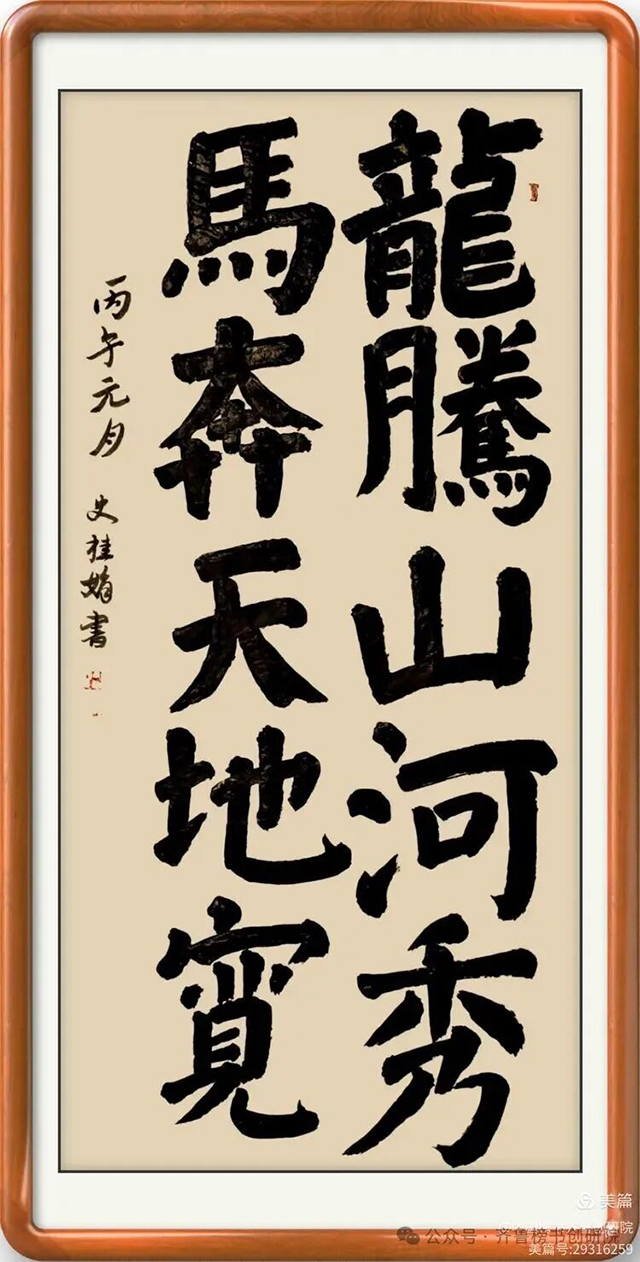 龍騰山河秀
馬奔天地寬
丙午元月 史桂娟書
美篇
公众号·齐鲁榜书创研院
美篇号:29316259